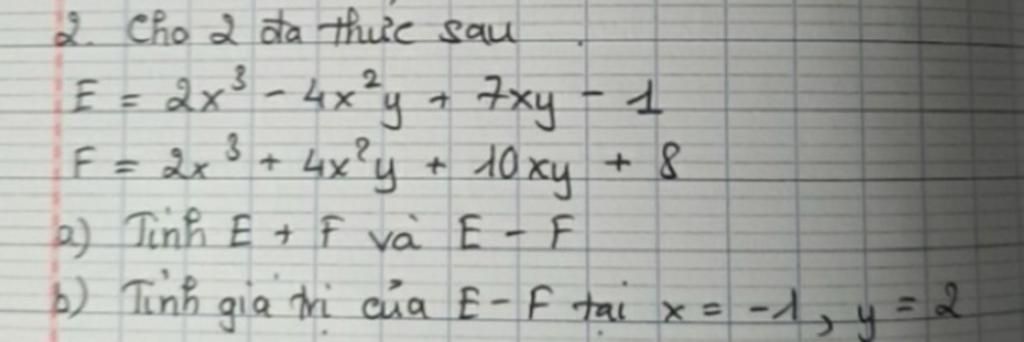 2. Cho 2 đa thức sau.
E = 2x³ - 4x²y + 7xy - 1
F = 2x³ + 4x²y + 10xy + 8
a) Tính E + F và E - F
b) Tính giá trị của E - F tại x = -1, y = 2